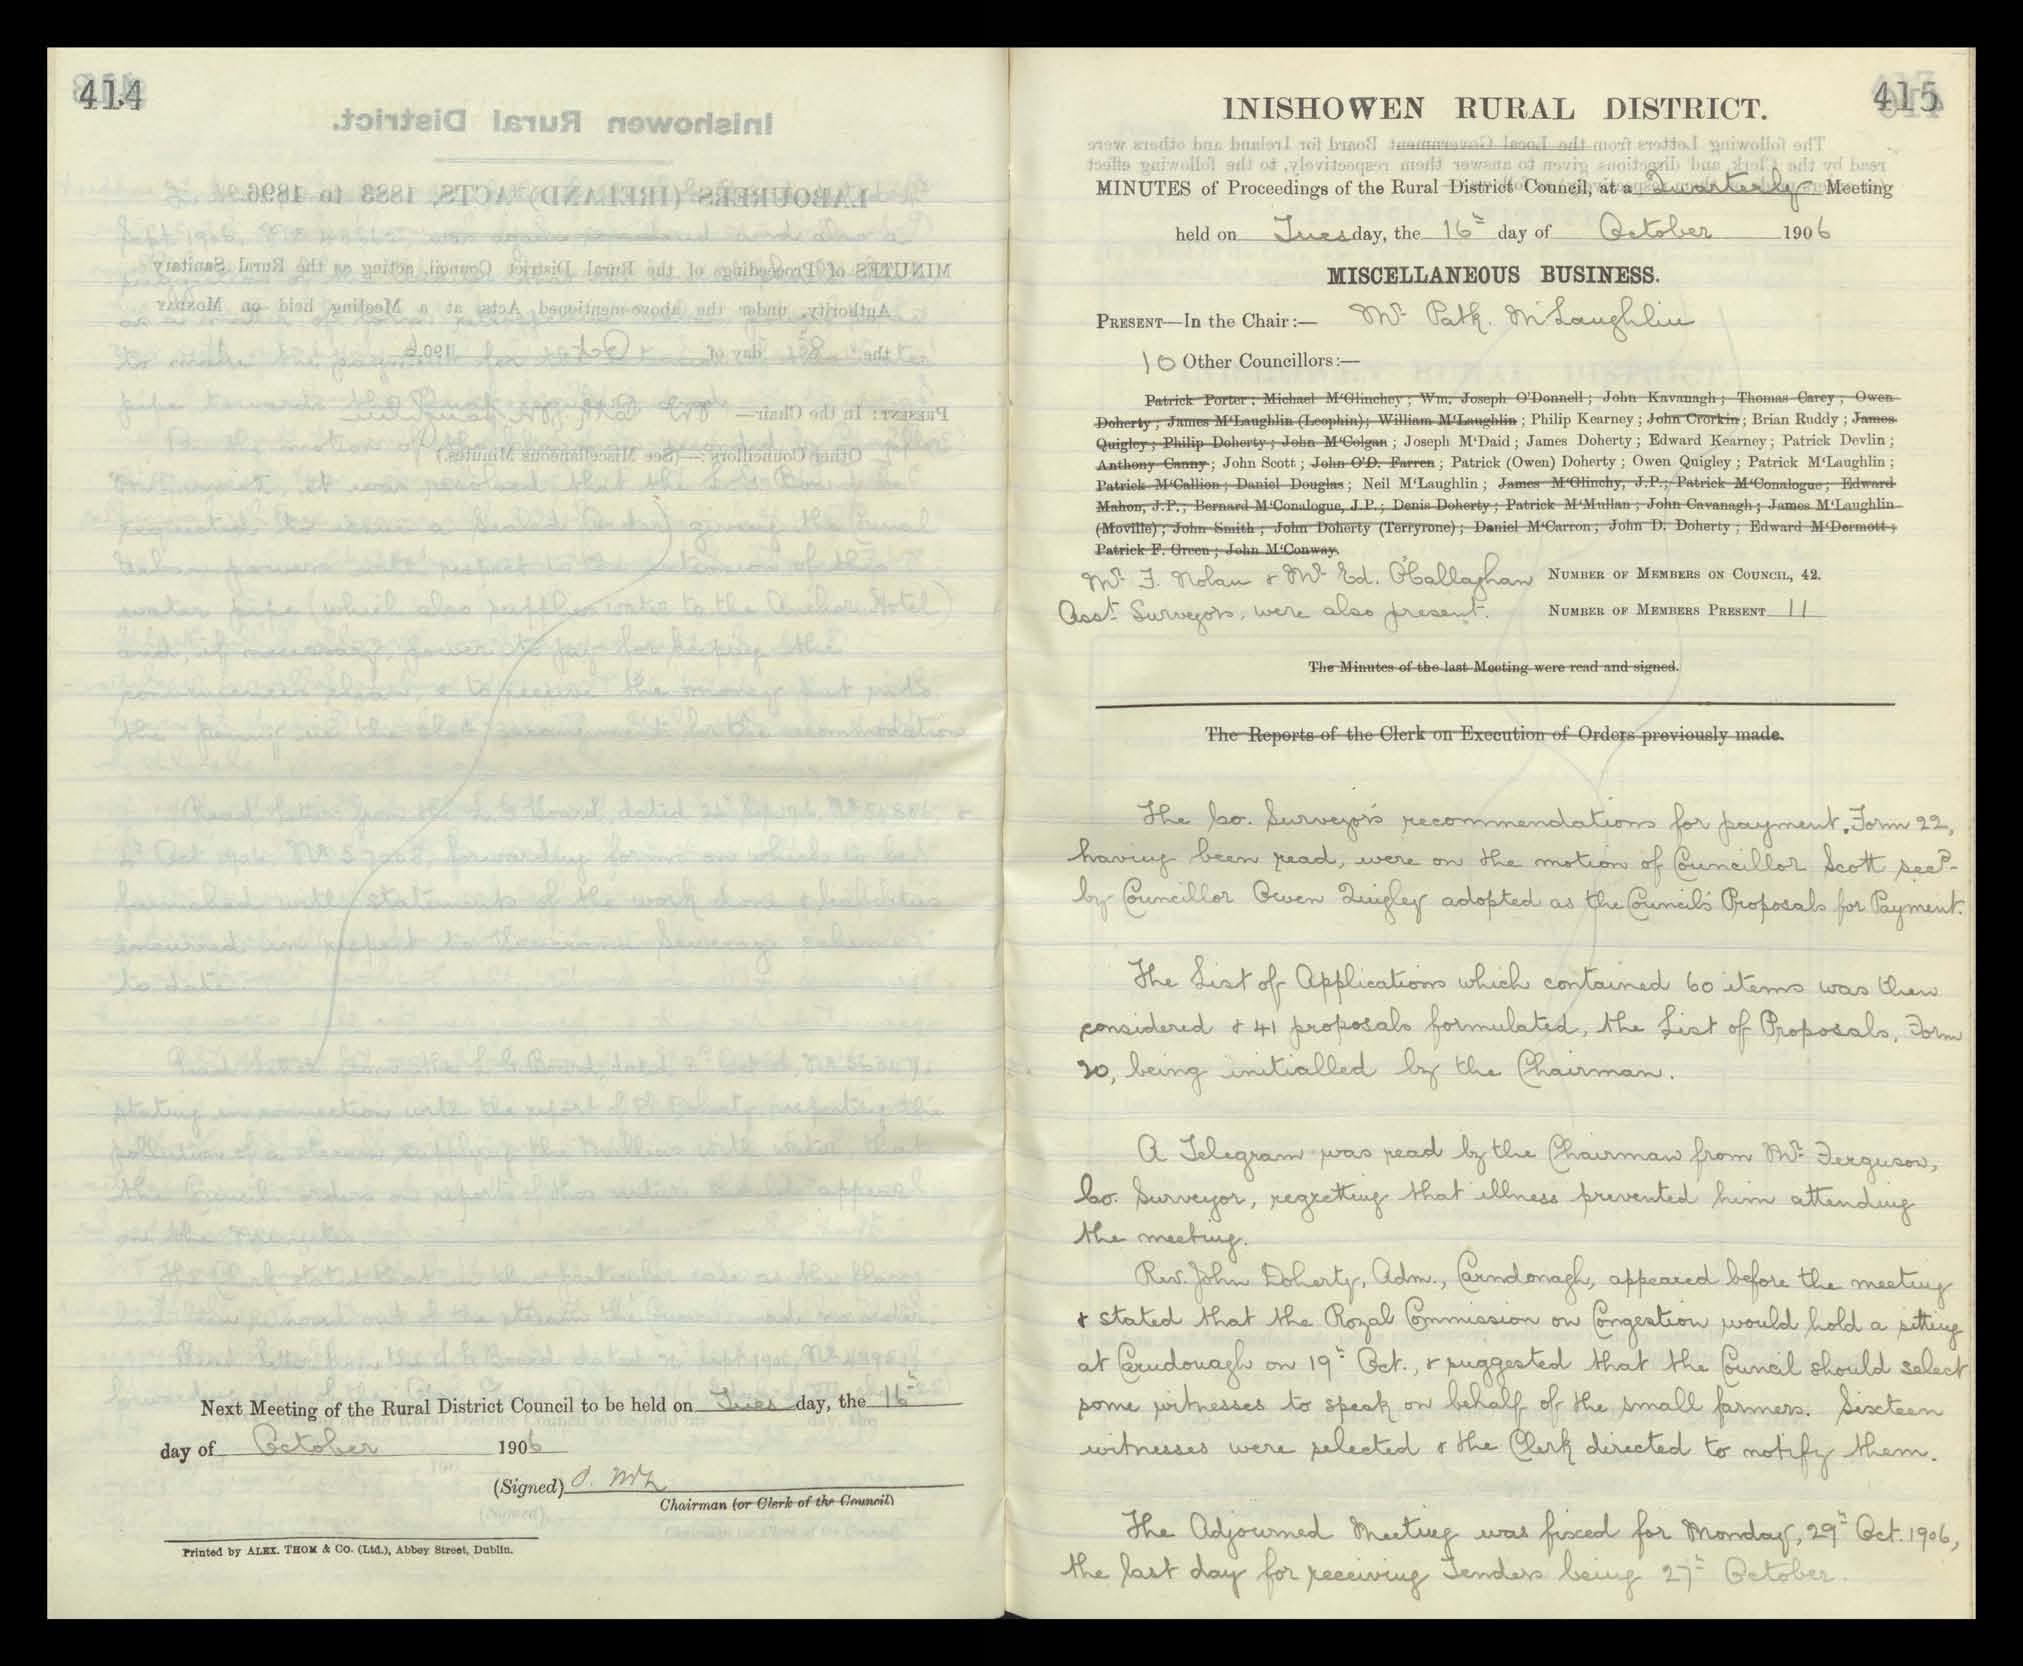 414
Next Meeting of the Rural District Council to be held on Tues day, the 16th
day of October 1906
(Signed) P. McL
Chairman (or Clerk of the Council)
Printed by ALEX. THOM & CO. (Ltd.), Abbey Street, Dublin.
415
INISHOWEN RURAL DISTRICT.
MINUTES of Proceedings of the Rural District Council, at a Quarterly Meeting
held on Tuesday, the 16th day of October 1906
MISCELLANEOUS BUSINESS.
PRESENT—In the Chair:— Mr. Patk. McLaughlin
10 Other Councillors:—
Patrick Porter; Michael M'Glinchey; Wm. Joseph O'Donnell; John Kavanagh; Thomas Carey; Owen
Doherty; James M'Laughlin (Leophin); William M'Laughlin; Philip Kearney; John Crorkin; Brian Ruddy; James
Quigley; Philip Doherty; John M'Colgan; Joseph M'Daid; James Doherty; Edward Kearney; Patrick Devlin;
Anthony Canny; John Scott; John O'D. Farren; Patrick (Owen) Doherty; Owen Quigley; Patrick M'Laughlin;
Patrick M'Callion; Daniel Douglas; Neil M'Laughlin; James M'Glinchy, J.P.; Patrick M'Conalogue; Edward
Mahon, J.P.; Bernard M'Conalogue, J.P.; Denis Doherty; Patrick M'Mullan; John Cavanagh; James M'Laughlin
(Moville); John Smith; John Doherty (Terryrone); Daniel M'Carron; John D. Doherty; Edward M'Dermott;
Patrick F. Green; John M'Conway.
Mr. F. Nolan & Mr. Ed. O'Callaghan NUMBER OF MEMBERS ON COUNCIL, 42.
Asst. Surveyors, were also present. NUMBER OF MEMBERS PRESENT 11
The Minutes of the last Meeting were read and signed.
The Reports of the Clerk on Execution of Orders previously made.
The Co. Surveyor's recommendations for payment, Form 22,
having been read, were on the motion of Councillor Scott secd.
by Councillor Owen Quigley adopted as the Council's Proposals for Payment.
The List of Applications which contained 60 items was then
considered & 41 proposals formulated, the List of Proposals, Form
20, being initialled by the Chairman.
A Telegram was read by the Chairman from Mr. Ferguson,
Co. Surveyor, regretting that illness prevented him attending
the meeting.
Rev. John Doherty, Adm., Carndonagh, appeared before the meeting
& stated that the Royal Commission on Congestion would hold a sitting
at Carndonagh on 19th Oct., & suggested that the Council should select
some witnesses to speak on behalf of the small farmers. Sixteen
witnesses were selected & the Clerk directed to notify them.
The Adjourned Meeting was fixed for Monday, 29th Oct. 1906,
the last day for receiving Tenders being 27th October.